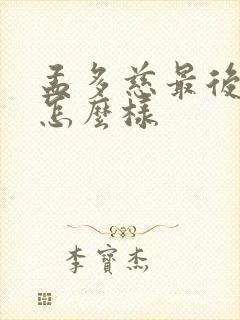 孟多慈最後
怎麼樣
李寶杰